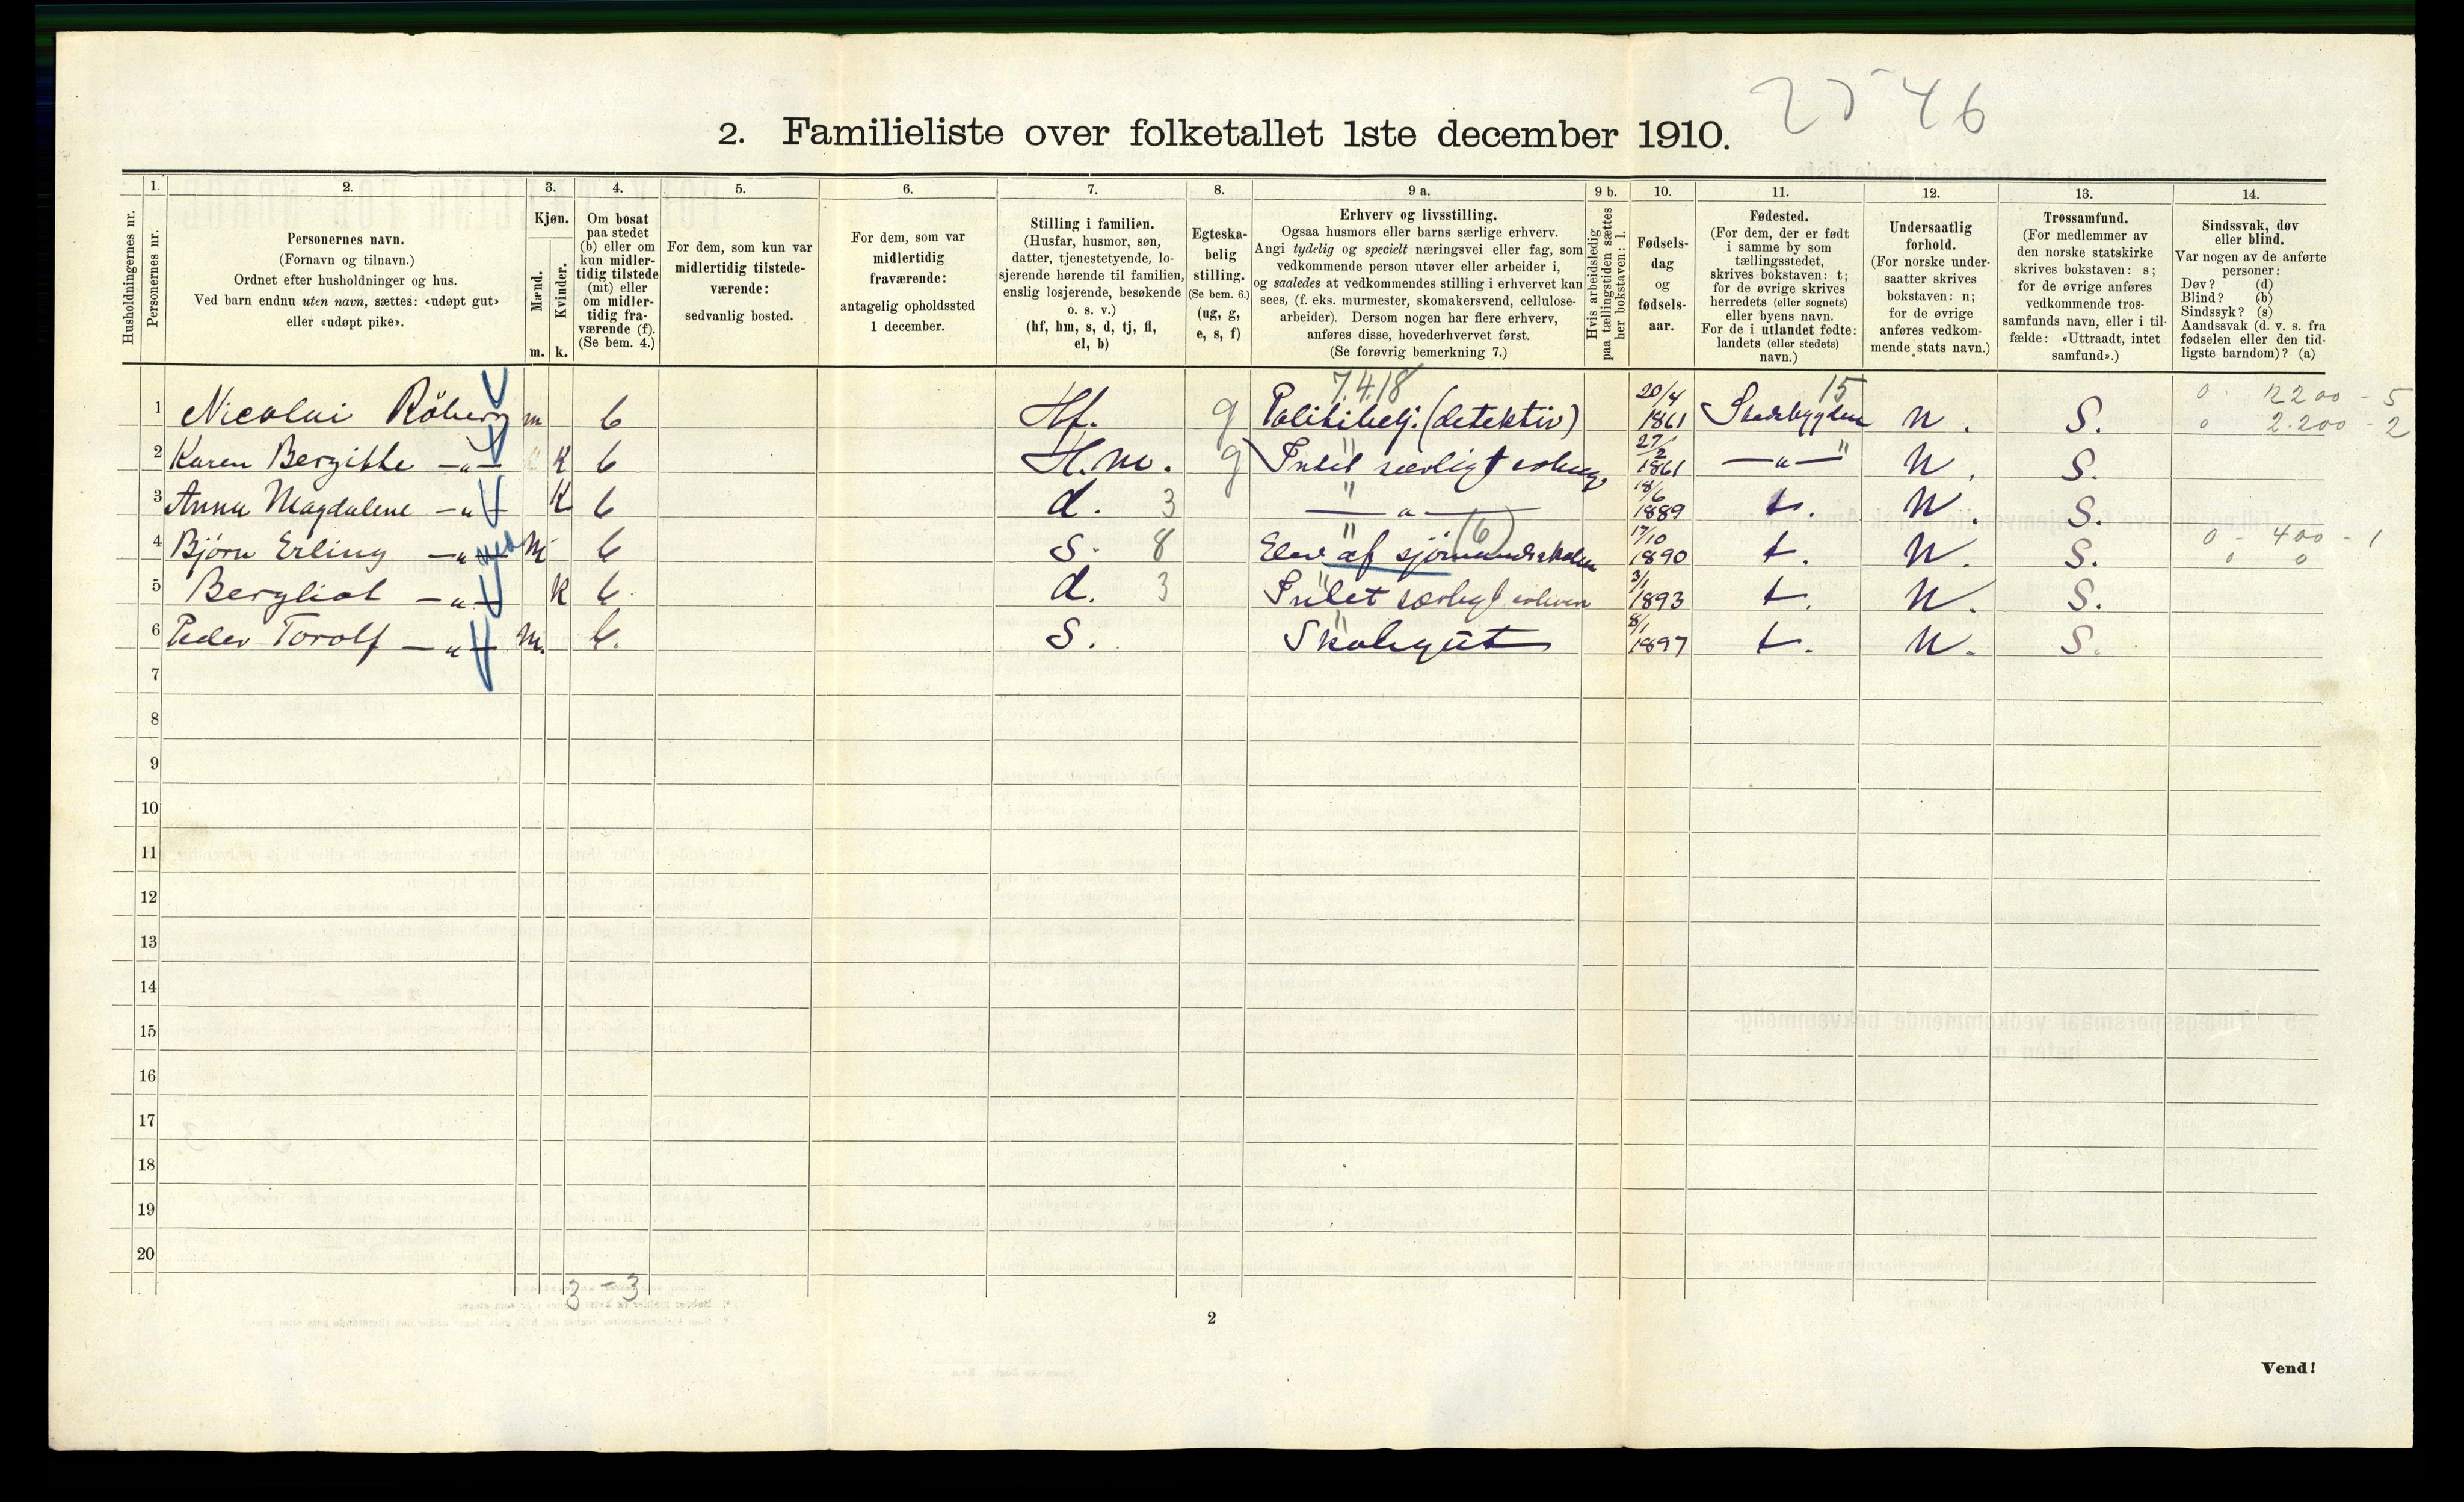 25 46
2. Familieliste over folketallet 1ste december 1910.
Husholdningernes nr.
1.
Personernes nr.
2.
Personernes navn.
(Fornavn og tilnavn.)
Ordnet efter husholdninger og hus.
Ved barn endnu uten navn, sættes: «udøpt gut»
eller «udøpt pike».
3.
Kjøn.
Mænd.
m.
Kvinder.
k.
4.
Om bosat
paa stedet
(b) eller om
kun midler-
tidig tilstede
(mt) eller
om midler-
tidig fra-
værende (f).
(Se bem. 4.)
5.
For dem, som kun var
midlertidig tilstede-
værende:
sedvanlig bosted.
6.
For dem, som var
midlertidig
fraværende:
antagelig opholdssted
1 december.
7.
Stilling i familien.
(Husfar, husmor, søn,
datter, tjenestetyende, lo-
sjerende hørende til familien,
enslig losjerende, besøkende
o. s. v.)
(hf, hm, s, d, tj, fl,
el, b)
8.
Egteska-
belig
stilling.
(Se bem. 6.)
(ug, g,
e, s, f)
9 a.
Erhverv og livsstilling.
Ogsaa husmors eller barns særlige erhverv.
Angi tydelig og specielt næringsvei eller fag, som
vedkommende person utøver eller arbeider i,
og saaledes at vedkommendes stilling i erhvervet kan
sees, (f. eks. murmester, skomakersvend, cellulose-
arbeider). Dersom nogen har flere erhverv,
anføres disse, hovederhvervet først.
(Se forøvrig bemerkning 7.)
9 b.
Hvis arbeidsledig
paa tællingstiden sættes
her bokstaven: l.
10.
Fødsels-
dag
og
fødsels-
aar.
11.
Fødested.
(For dem, der er født
i samme by som
tællingsstedet,
skrives bokstaven: t;
for de øvrige skrives
herredets (eller sognets)
eller byens navn.
For de i utlandet fødte:
landets (eller stedets)
navn.)
12.
Undersaatlig
forhold.
(For norske under-
saatter skrives
bokstaven: n;
for de øvrige
anføres vedkom-
mende stats navn.)
13.
Trossamfund.
(For medlemmer av
den norske statskirke
skrives bokstaven: s;
for de øvrige anføres
vedkommende tros-
samfunds navn, eller i til-
fælde: «Uttraadt, intet
samfund».)
14.
Sindssvak, døv
eller blind.
Var nogen av de anførte
personer:
Døv? (d)
Blind? (b)
Sindssyk? (s)
Aandssvak (d. v. s. fra
fødselen eller den tid-
ligste barndom)? (a)
7.4.18 15
1 Nicolai Röberg m b Hf. g Politibetj. (detektiv) 20/4 1861 Stadsbygden n. S. 0 2200 - 5
0 2.200 - 2
2 Karen Bergitte —„— K b H.m. g Intet særligt erhverv 27/2 1861 —„— n. S.
3 Anna Magdalene —„— K b d. 3 —„— 18/6 1889 t. n. S.
4 Bjørn Erling —„— m b s. 8 Elev af sjömandsskolen (6) 17/10 1890 t. n. S. 0 - 400 - 1
0 0
5 Bergliot —„— K b d. 3 Intet særligt erhverv 3/1 1893 t. n. S.
6 Peder Torolf —„— m. b. s. Skolegut 8/1 1897 t. n. S.
7
8
9
10
11
12
13
14
15
16
17
18
19
20
3 - 3
2
Vend!